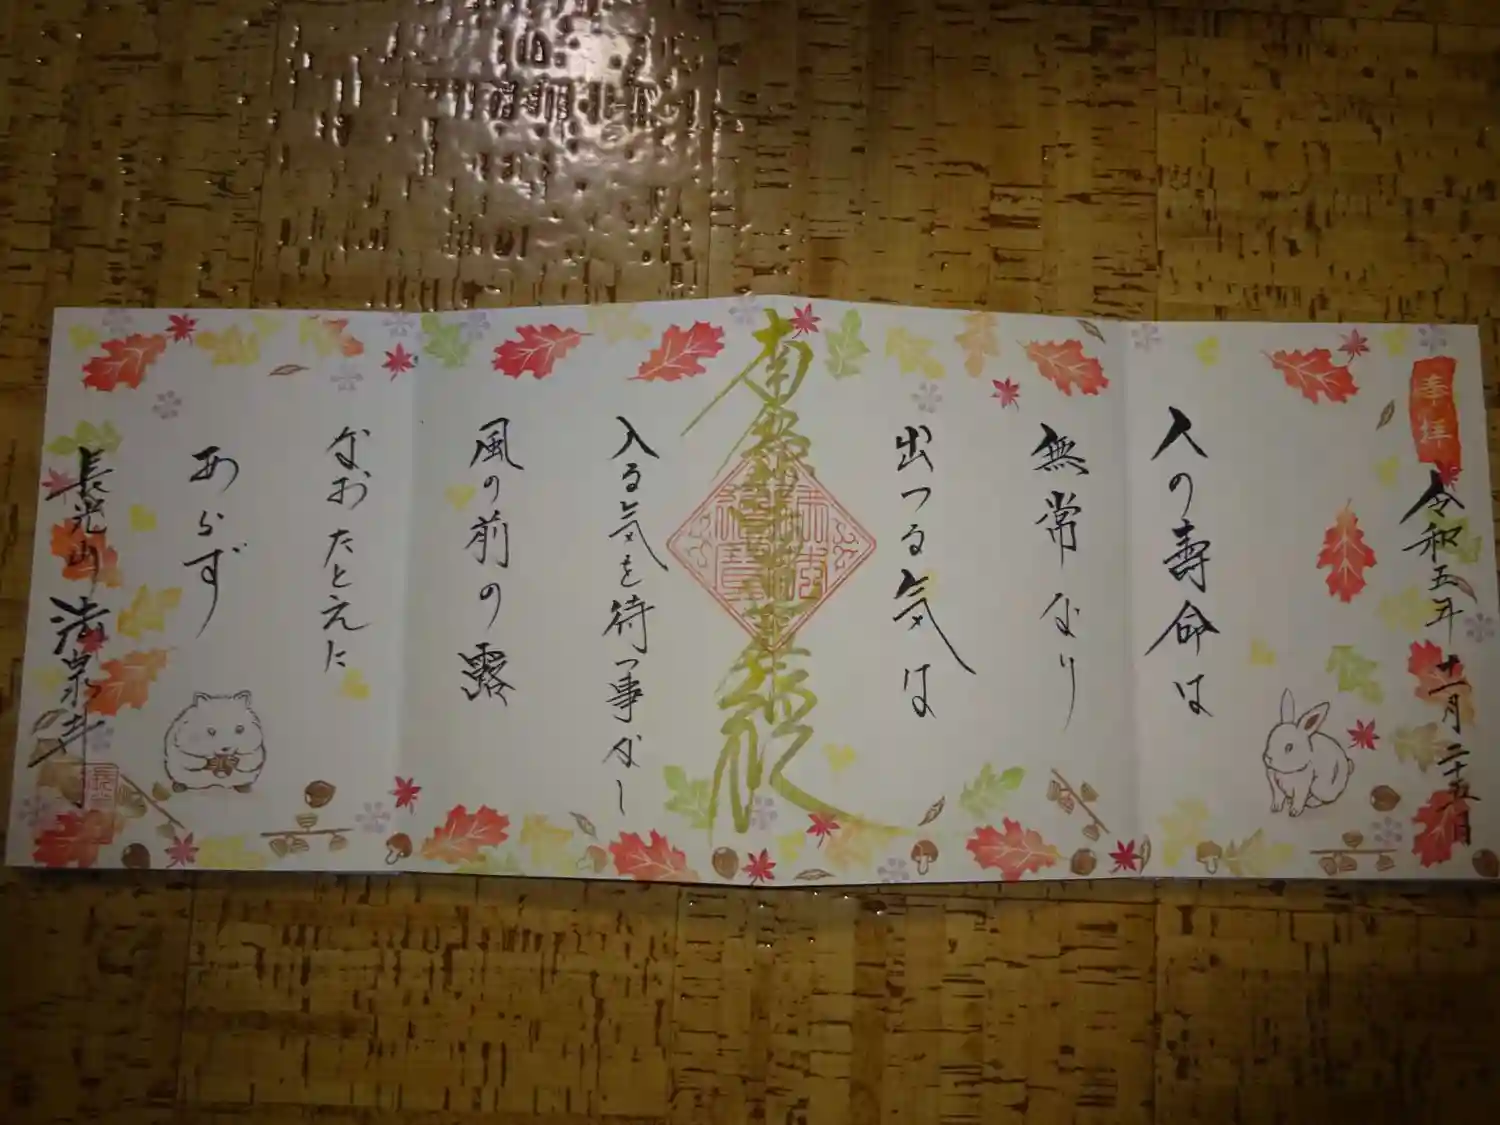 奉拝
令和五年十一月二十五日
人の寿命は
無常なり
出つる気は
南無妙法蓮華経
入る気を待つ事なし
風の前の露
なおたとえに
あらず
長光山 法泉寺